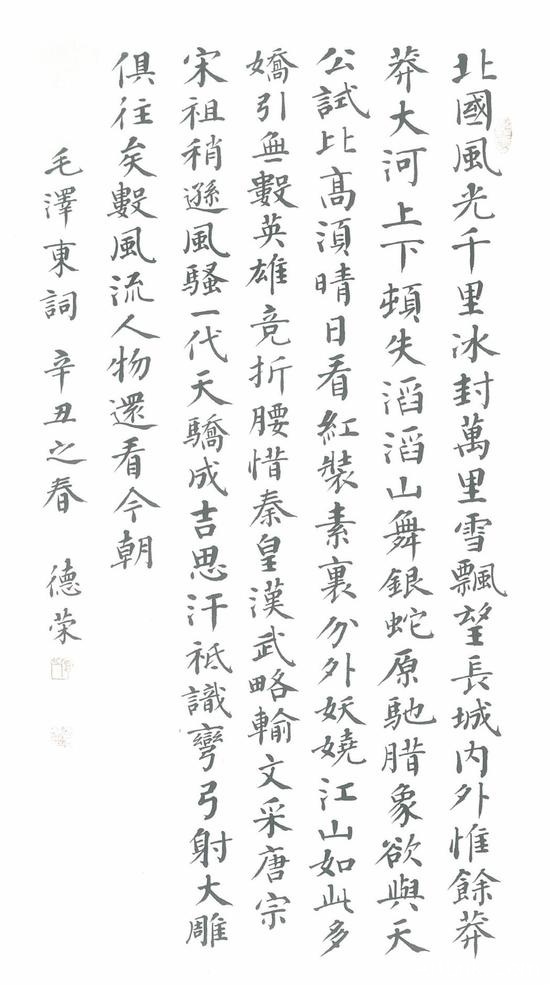 北國風光千里冰封萬里雪飄望長城内外惟餘莽
莽大河上下頓失滔滔山舞銀蛇原馳腊象欲與天
公試比高須晴日看紅裝素裹分外妖嬈江山如此多
嬌引無數英雄竞折腰惜秦皇漢武略輸文采唐宗
宋祖稍遜風騷一代天驕成吉思汗祗識彎弓射大雕
俱往矣數風流人物還看今朝
毛澤東詞 辛丑之春 德荣